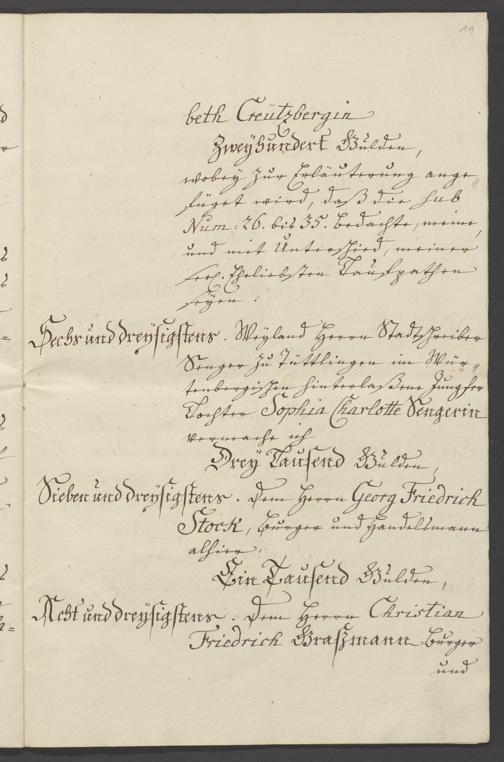 19
beth Creützbergin
Zweyhundert Gulden,
wobey zur Erläuterung ange-
füget wird, daß die sub
Num: 26. bis 35. bedachte, meine,
und mit Unterschied, meiner
seel. Eheliebsten Taufpathen
seyen :
Sechs und dreysigstens. Weyland Herrn Stadtschreiber
Senger zu Tüttlingen im Wür-
tenbergischen hinterlaßene Jungfer
Tochter Sophia Charlotte Sengerin
vermache ich
Drey Tausend Gulden,
Sieben und dreysigstens. Dem Herrn Georg Friedrich
Stock, Burger und Handelsmann
alhier,
Ein Tausend Gulden,
Acht und dreysigstens. Dem Herrn Christian
Friedrich Graßmann Burger
und